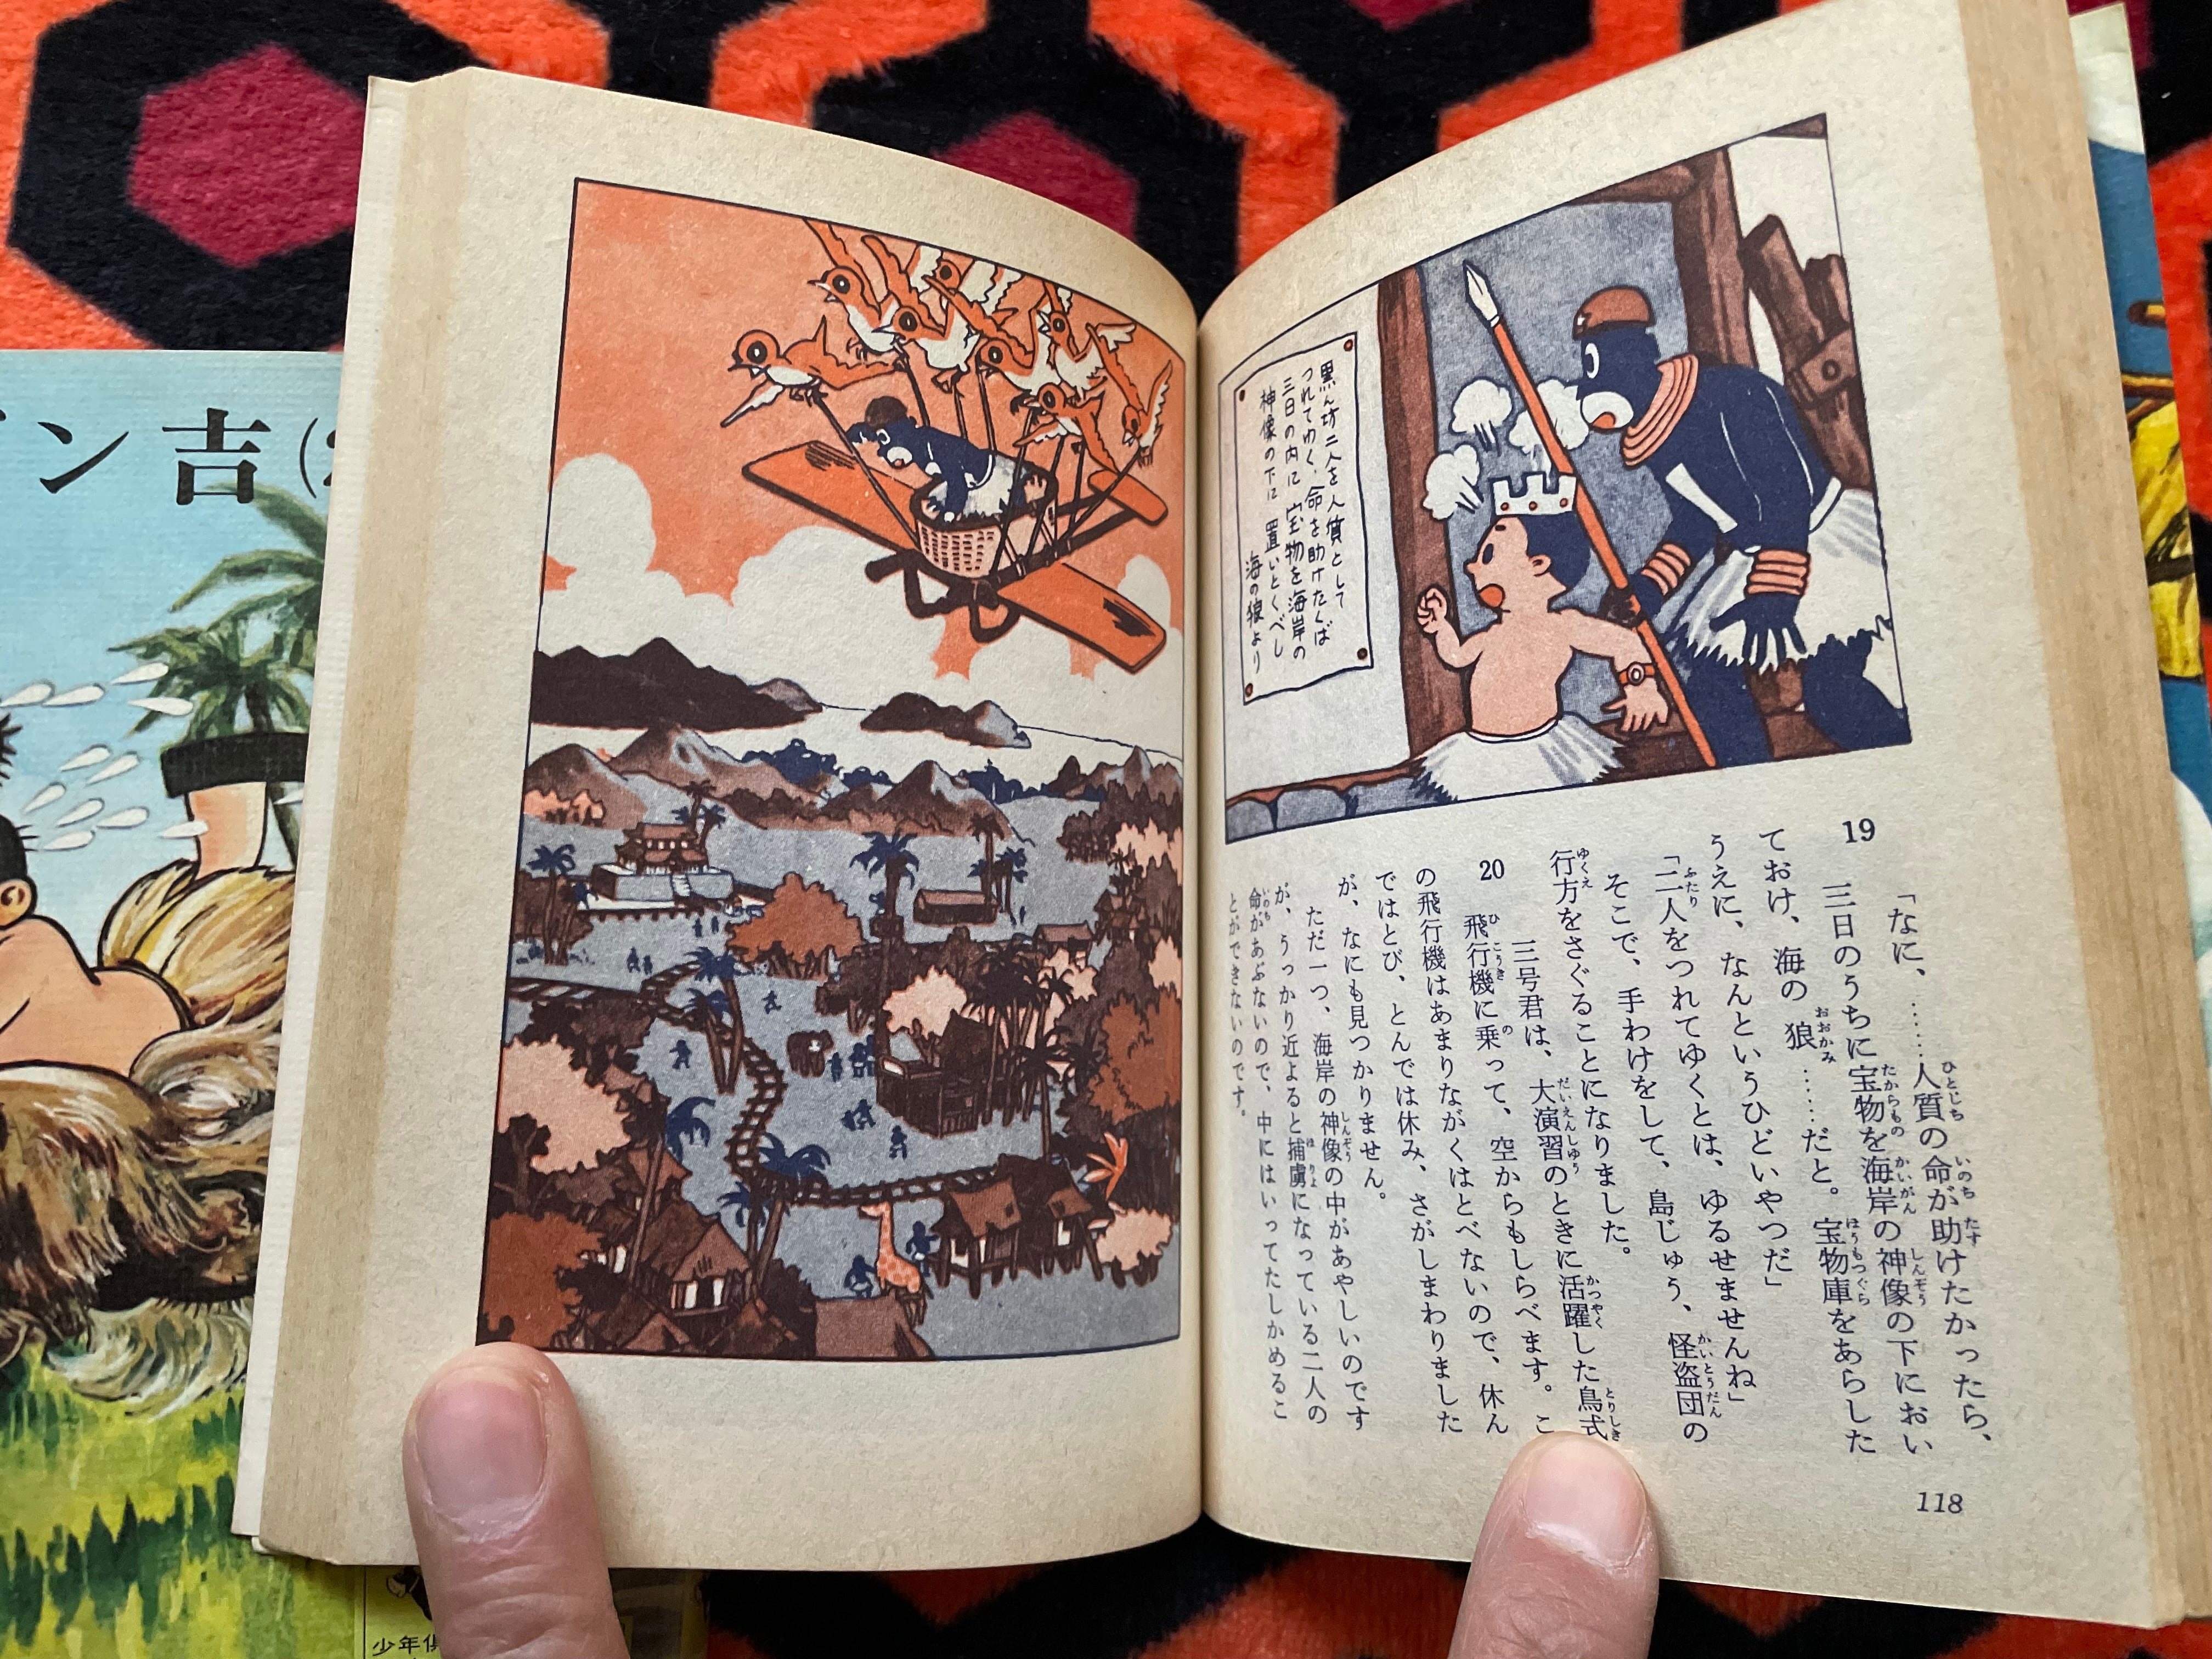 黒ん坊二人を人質として
つれてゆく、命を助けたくば
三日の内に宝物を海岸の
神像の下に置いとくべし
海の狼より
19
「なに、……人質の命が助けたかったら、
三日のうちに宝物を海岸の神像の下におい
ておけ、海の狼……だと。宝物庫をあらした
うえに、なんというひどいやつだ」
「二人をつれてゆくとは、ゆるせませんね」
そこで、手わけをして、島じゅう、怪盗団の
行方をさぐることになりました。
20
三号君は、大演習のときに活躍した鳥式
飛行機に乗って、空からもしらべます。こ
の飛行機はあまりながくはとべないので、休ん
ではとび、とんでは休み、さがしまわりました
が、なにも見つかりません。
ただ一つ、海岸の神像の中があやしいのです
が、うっかり近よると捕虜になっている二人の
命があぶないので、中にはいってたしかめるこ
とができないのです。
118
ン吉(2
少年倶